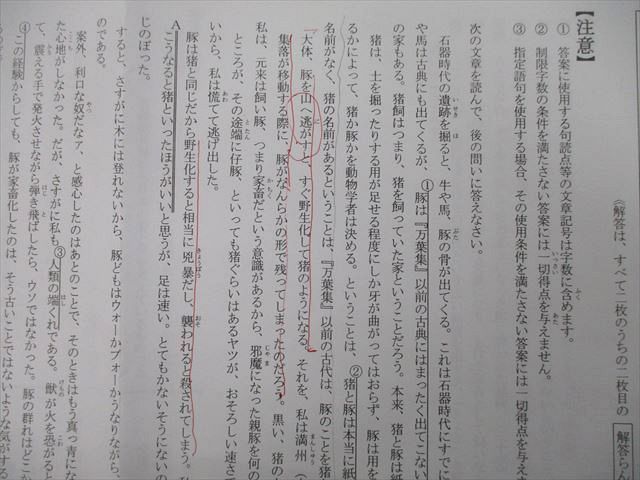 《解答は、すべて二枚のうちの二枚目の
解答らん
【注意】
① 答案に使用する句読点等の文章記号は字数に含めます。
② 制限字数の条件を満たさない答案には一切得点を与えません。
③ 指定語句を使用する場合、その使用条件を満たさない答案には一切得点を与え
次の文章を読んで、後の問いに答えなさい。
石器時代の遺跡を掘ると、牛や馬、豚の骨が出てくる。これは石器時代にすでに
や馬は古典にも出てくるが、①豚は『万葉集』以前の古典にはまったく出てこない
の家もある。猪飼はつまり、猪を飼っていた家ということだろう。本来、猪と豚は紙
猪は、土を掘ったりする用が足せる程度にしか牙が曲がってはおらず、豚は用を
るかによって、猪か豚かを動物学者は決める。ということは、②猪と豚は本当に紙
名前がなく、猪の名前があるということは、『万葉集』以前の古代は、豚のことを猪
「大体、豚を山に逃がすと、すぐ野生化して猪のようになる。それを、私は満州（
集落が移動する際に、豚がなんらかの形で残ってしまったのだろう。黒い、猪の
私は、元来は飼い豚、つまり家畜だという意識があるから、邪魔になった親豚を何の
ところが、その途端に仔豚、といっても猪ぐらいはあるヤツが、おそろしい速さで
いから、私は慌てて逃げ出した。
豚は猪と同じだから野生化すると相当に兇暴だし、襲われると殺されてしまう。
A
こうなると猪といったほうがいいと思うが、足は速い。とてもかないそうにない
じのぼった。
すると、さすがに木には登れないから、豚どもはウォーかブォーかうなりながら、
のである。
案外、利口な奴だなァ、と感心したのはあとのことで、そのときはもう真っ青にな
た心地がしなかった。だが、さすがに私も③人類の端くれである。獣が火を恐がると
て、震える手で発火させながら弾き飛ばしたら、ウソではなかった。豚の群れはどこか
④この経験からしても、豚が家畜化したのは、そう古いことではないような気がする